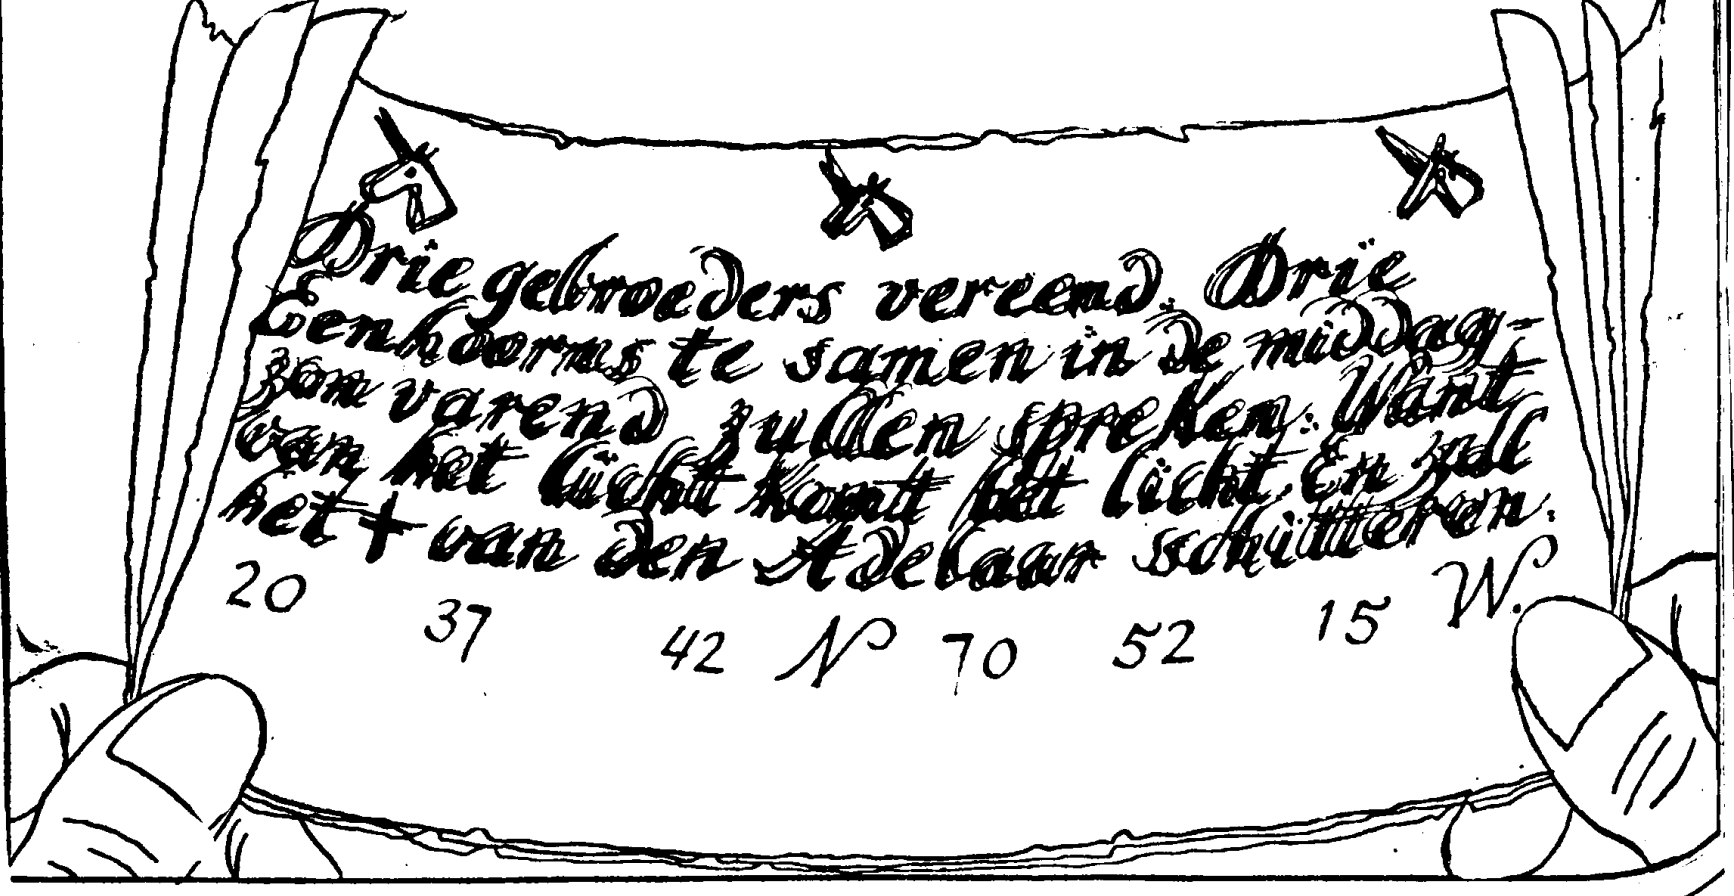 Drie gebroeders vereend. Drie
Eenhoorns te samen in de middag-
zon varend zullen spreken. Want
van het licht komt het licht. En zall
het + van den Adelaar schitteren.
20 37 42 N 70 52 15 W.